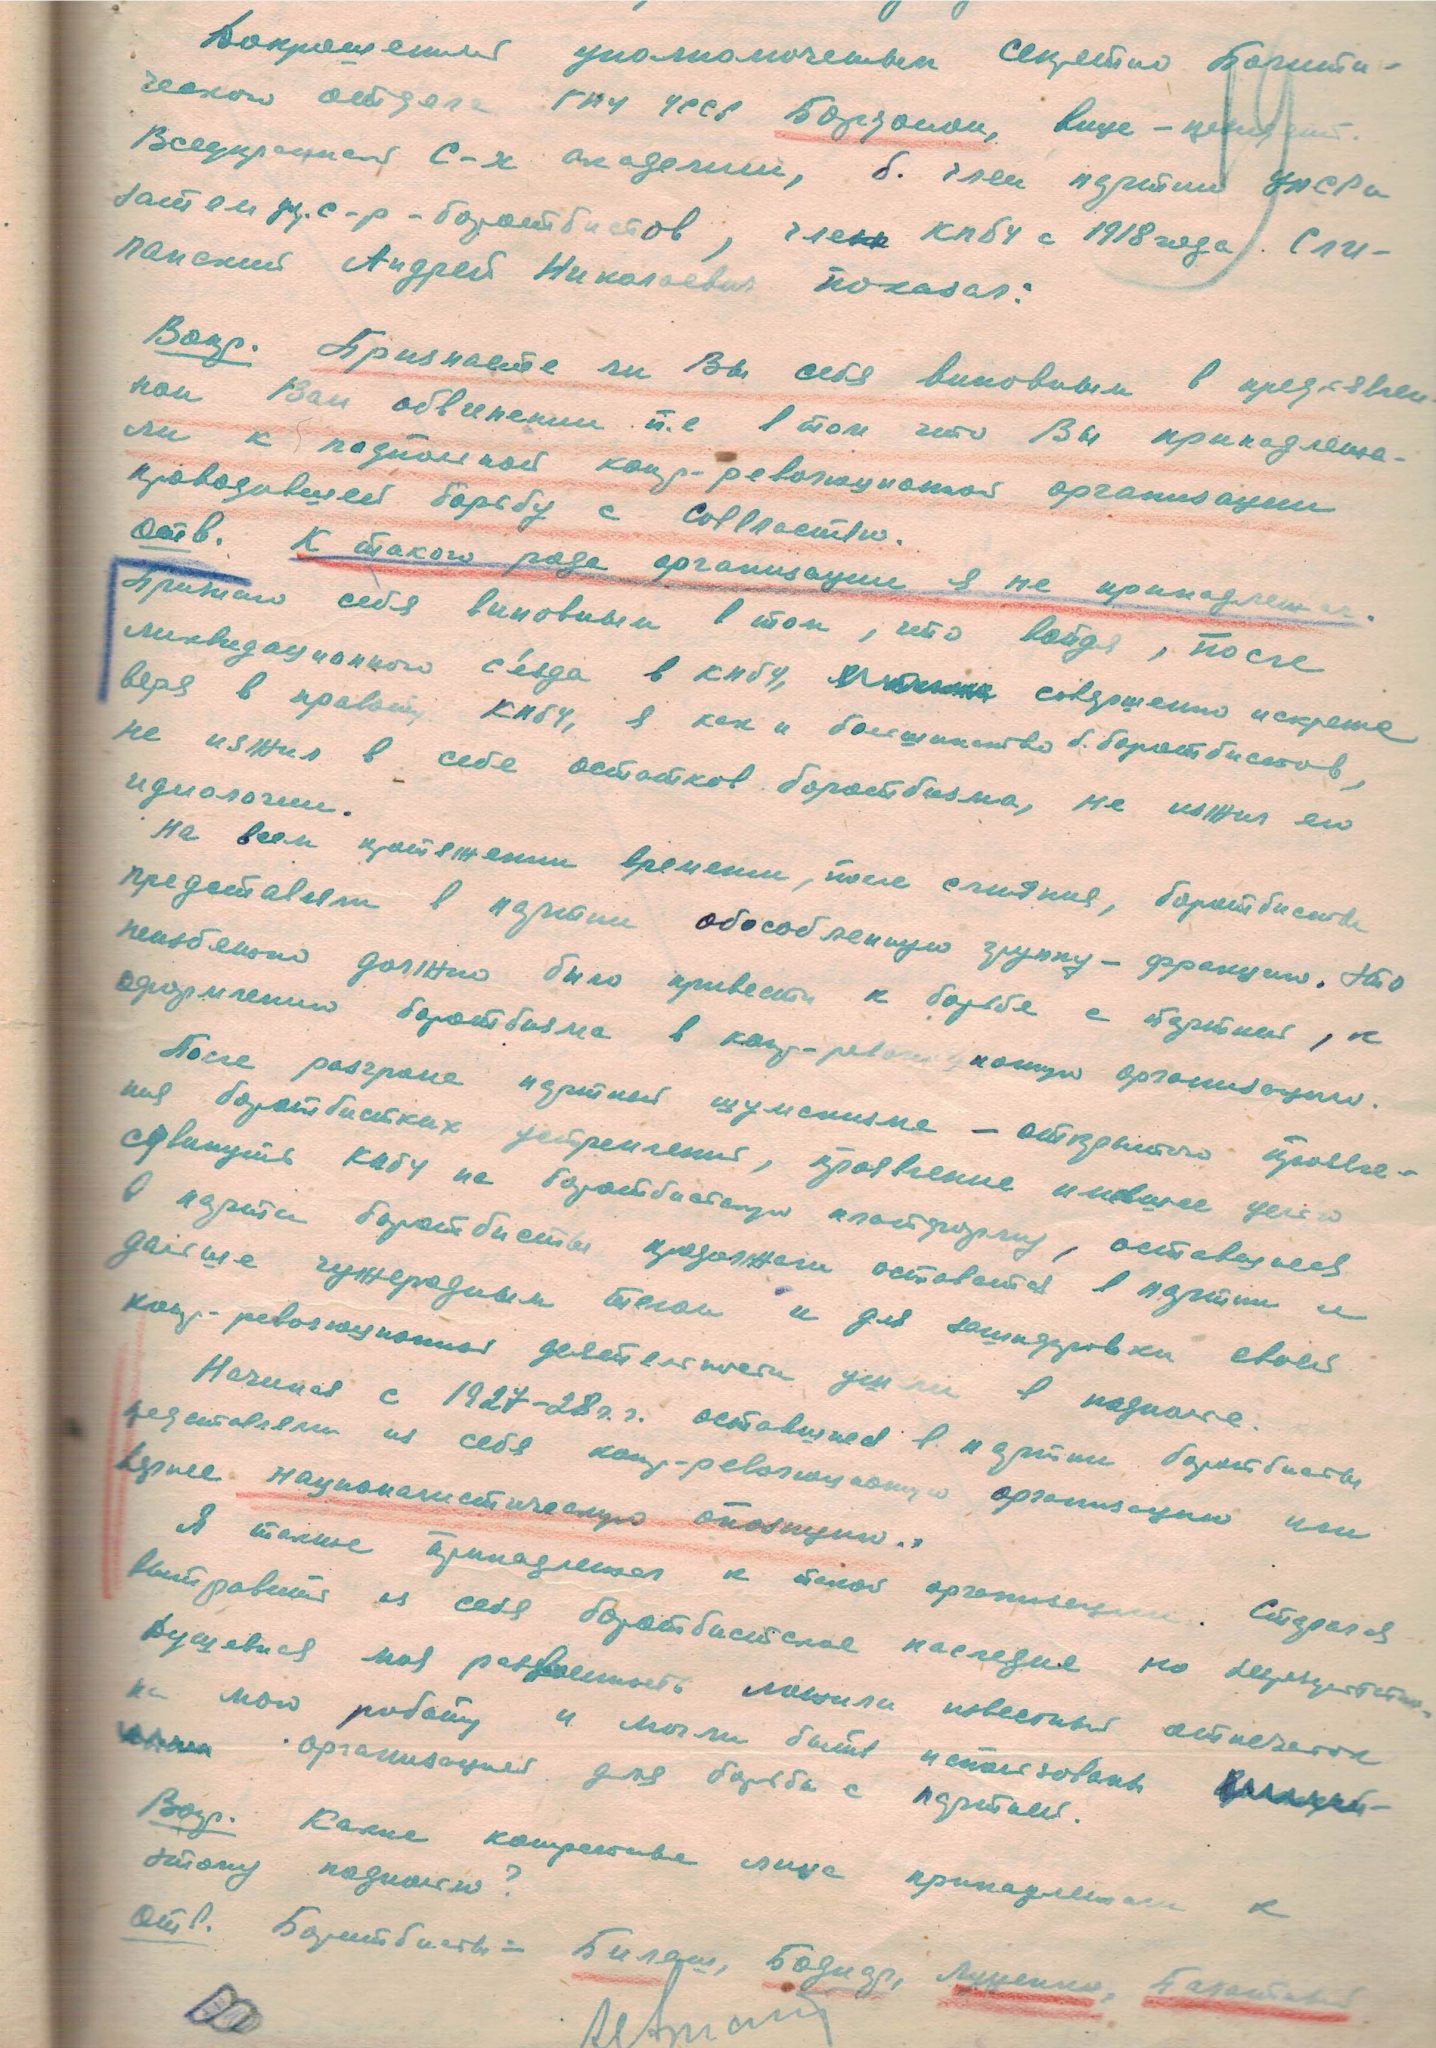 Допрошенный уполномоченным секретно полити-
ческого отдела ГПУ УССР Бордоном, вице-президент
Всеукраинской С-х академии, б. член партии УПСР а
затем у.с-р-боротбистов, член КПбУ с 1918 года Сли-
панский Андрей Николаевич показал:
Вопр. Признаете ли Вы себя виновным в предъявлен-
ном Вам обвинении т.е в том что Вы принадлежа-
ли к подпольной контр-революционной организации
проводившей борьбу с Соввластью.
Отв. К такого рода организации я не принадлежал.
Признаю себя виновным в том, что войдя, после
ликвидационного с'езда в КПбУ, совершенно искренне
веря в правоту КПбУ, я как и большинство б. боротбистов,
не изжил в себе остатков боротбизма, не изжил его
идиологии.
На всем протяжении времени, после слияния, боротбисты
представляли в партии обособленную группу - фракцию. Это
неизбежно должно было привести к борьбе с партией, к
оформлению боротбизма в контр-революционную организацию.
После разгрома партией шумскизма - открытого проявле-
ния боротбистких устремлений, проявление имевшее целью
сдвинуть КПбУ на боротбистскую платформу, оставшиеся
в партии боротбисты продолжали оставатся в партии и
дальше чужеродным телом и для зашифровки своей
контр-революционной деятельности ушли в подполье.
Начиная с 1927-28 г.г. оставшиеся в партии боротбисты
представляли из себя контр-революционную организацию или
вернее националистическую опозицию.
Я также принадлежал к такой организации. Старался
вытравить из себя боротбистское наследие но
Душевная моя раздвоенность ложила известный отпечаток
на мою роботу и могли быть использованы
организацией для борьбы с партией.
Вопр. Какие конкретные лица принадлежали к
этому подполью?
Отв. Боротбисты - Билаш, Боднар, Луценко, Полоцкий